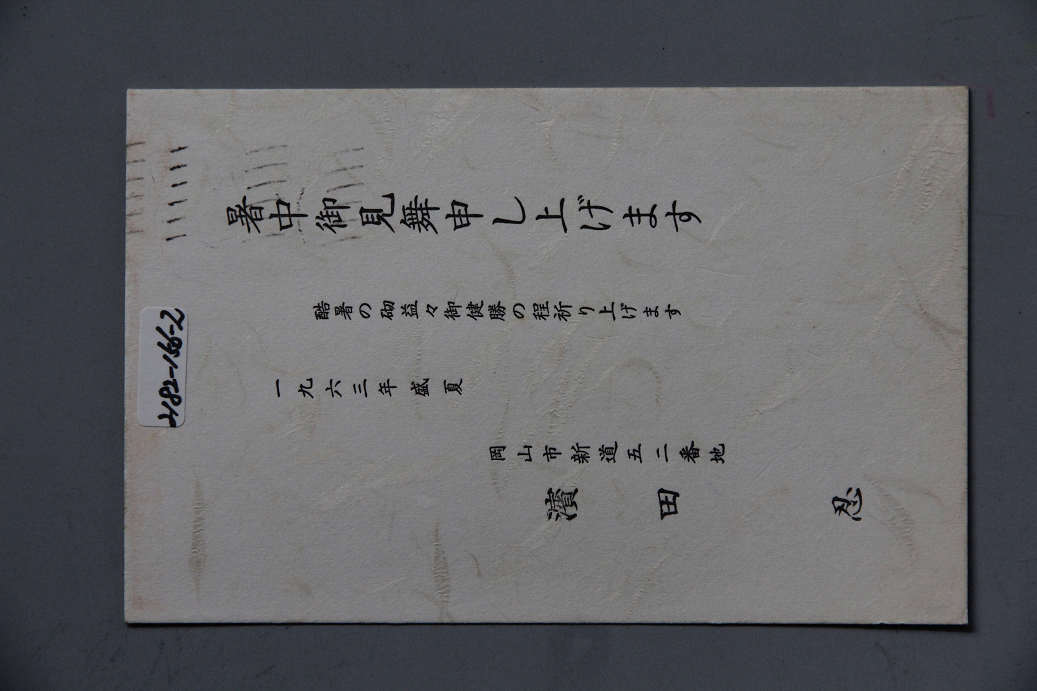 暑中御見舞申し上げます
酷暑の砌益々御健勝の程祈り上げます
一九六三年盛夏
岡山市新道五二番地
濱田 忍